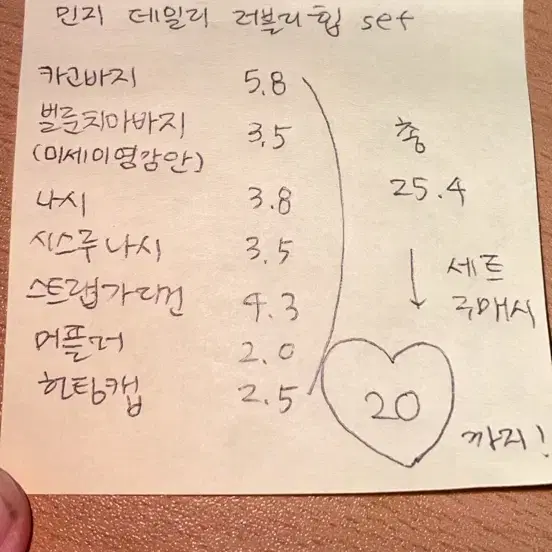 민지 데일리 러블리힙 set
카고바지 5.8
벌룬치마바지 3.5
(미세이염감안)
나시 3.8
시스루나시 3.5
스트랩가디건 4.3
머플러 2.0
헌팅캡 2.5
총
25.4
↓ 세트
구매시
20
까지!